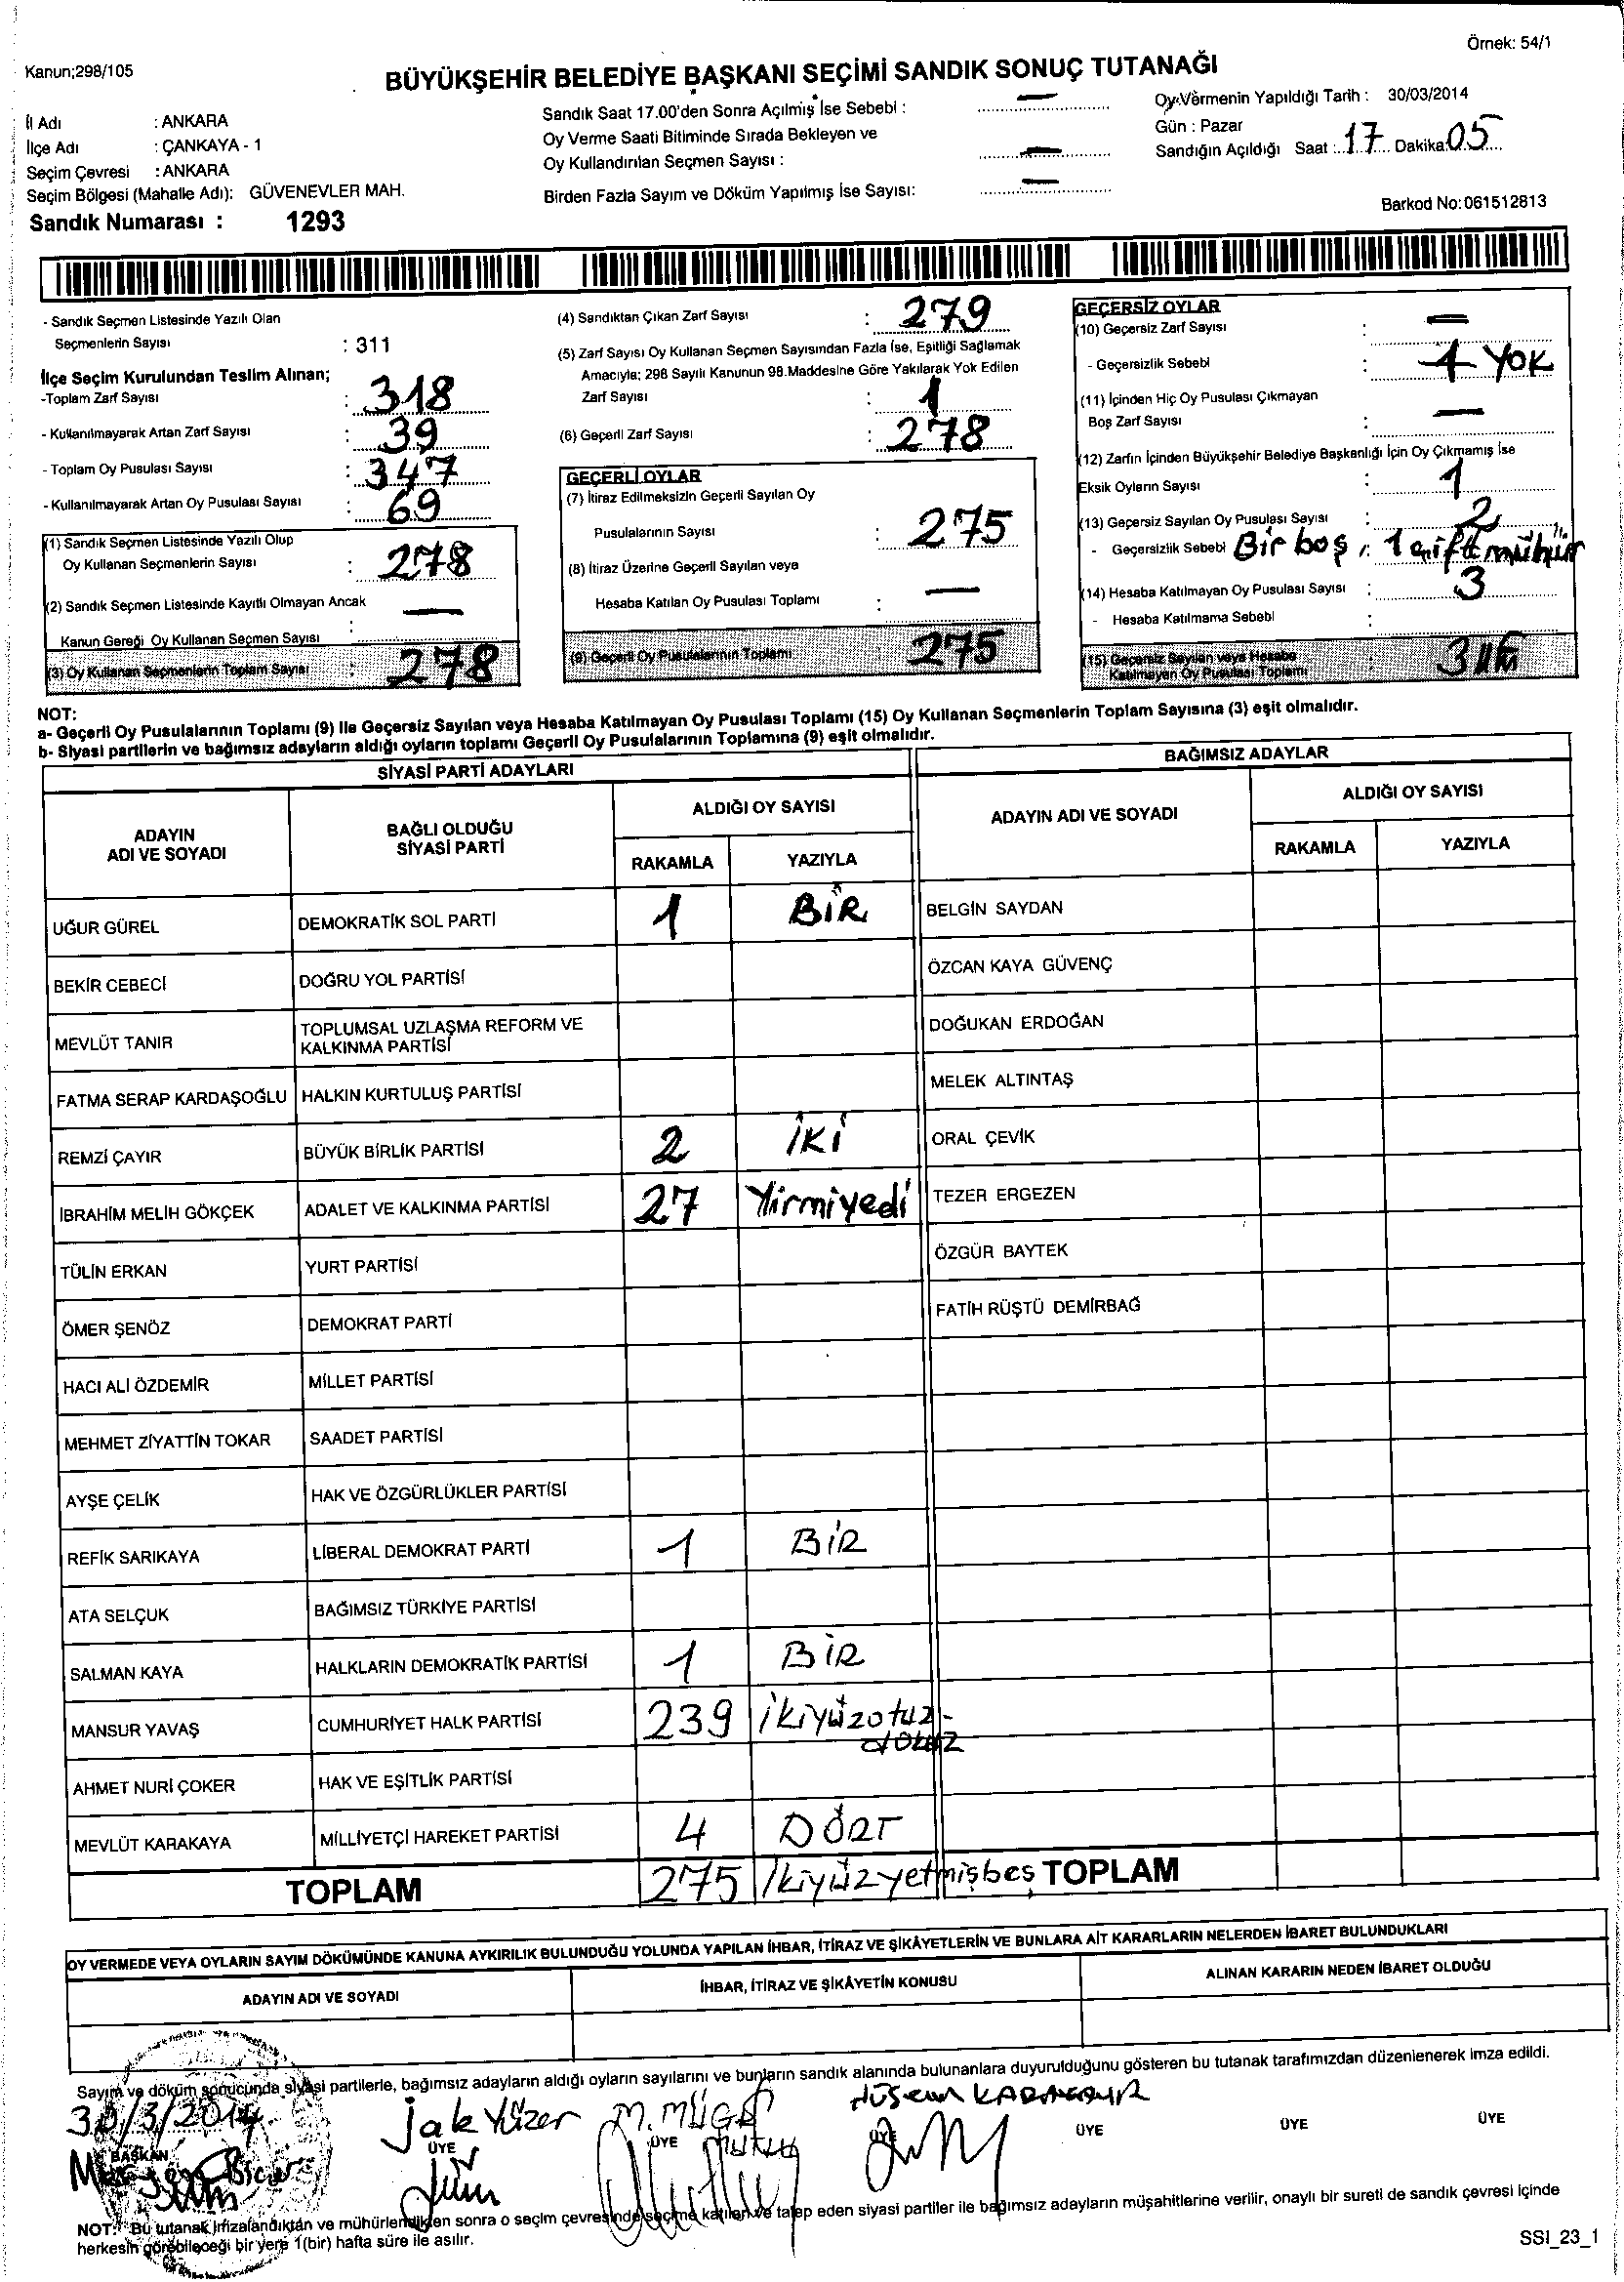 Örnek: 54/1
Kanun;298/105
BÜYÜKŞEHİR BELEDİYE BAŞKANI SEÇİMİ SANDIK SONUÇ TUTANAĞI
İl Adı : ANKARA
İlçe Adı : ÇANKAYA - 1
Seçim Çevresi : ANKARA
Seçim Bölgesi (Mahalle Adı): GÜVENEVLER MAH.
Sandık Numarası : 1293
Sandık Saat 17.00'den Sonra Açılmış İse Sebebi : —
Oy Verme Saati Bitiminde Sırada Bekleyen ve
Oy Kullandırılan Seçmen Sayısı : —
Birden Fazla Sayım ve Döküm Yapılmış İse Sayısı: —
Oy Vermenin Yapıldığı Tarih : 30/03/2014
Gün : Pazar
Sandığın Açıldığı Saat : 17 Dakika: 05
Barkod No:061512813
- Sandık Seçmen Listesinde Yazılı Olan
Seçmenlerin Sayısı : 311
İlçe Seçim Kurulundan Teslim Alınan;
-Toplam Zarf Sayısı : 318
- Kullanılmayarak Artan Zarf Sayısı : 39
- Toplam Oy Pusulası Sayısı : 347
- Kullanılmayarak Artan Oy Pusulası Sayısı : 69
(1) Sandık Seçmen Listesinde Yazılı Olup
Oy Kullanan Seçmenlerin Sayısı : 278
(2) Sandık Seçmen Listesinde Kayıtlı Olmayan Ancak
Kanun Gereği Oy Kullanan Seçmen Sayısı : —
(3) Oy Kullanan Seçmenlerin Toplam Sayısı : 278
(4) Sandıktan Çıkan Zarf Sayısı : 279
(5) Zarf Sayısı Oy Kullanan Seçmen Sayısından Fazla İse, Eşitliği Sağlamak
Amacıyla; 298 Sayılı Kanunun 98.Maddesine Göre Yakılarak Yok Edilen
Zarf Sayısı : 1
(6) Geçerli Zarf Sayısı : 278
GEÇERLİ OYLAR
(7) İtiraz Edilmeksizin Geçerli Sayılan Oy
Pusulalarının Sayısı : 275
(8) İtiraz Üzerine Geçerli Sayılan veya
Hesaba Katılan Oy Pusulası Toplamı : —
(9) Geçerli Oy Pusulalarının Toplamı 275
GEÇERSİZ OYLAR
(10) Geçersiz Zarf Sayısı : —
- Geçersizlik Sebebi : YOK
(11) İçinden Hiç Oy Pusulası Çıkmayan
Boş Zarf Sayısı : —
(12) Zarfın İçinden Büyükşehir Belediye Başkanlığı İçin Oy Çıkmamış İse
Eksik Oyların Sayısı : 1
(13) Geçersiz Sayılan Oy Pusulası Sayısı : 2
- Geçersizlik Sebebi Bir boş, 1 çift mühür
(14) Hesaba Katılmayan Oy Pusulası Sayısı : 3
- Hesaba Katılmama Sebebi :
(15) Geçersiz Sayılan veya Hesaba
Katılmayan Oy Pusulası Toplamı : 3
NOT:
a- Geçerli Oy Pusulalarının Toplamı (9) İle Geçersiz Sayılan veya Hesaba Katılmayan Oy Pusulası Toplamı (15) Oy Kullanan Seçmenlerin Toplam Sayısına (3) eşit olmalıdır.
b- Siyasi partilerin ve bağımsız adayların aldığı oyların toplamı Geçerli Oy Pusulalarının Toplamına (9) eşit olmalıdır.
SİYASİ PARTİ ADAYLARI
ADAYIN ADI VE SOYADI BAĞLI OLDUĞU SİYASİ PARTİ ALDIĞI OY SAYISI
RAKAMLA YAZIYLA
UĞUR GÜREL DEMOKRATİK SOL PARTİ 1 BİR
BEKİR CEBECİ DOĞRU YOL PARTİSİ
MEVLÜT TANIR TOPLUMSAL UZLAŞMA REFORM VE KALKINMA PARTİSİ
FATMA SERAP KARDAŞOĞLU HALKIN KURTULUŞ PARTİSİ
REMZİ ÇAYIR BÜYÜK BİRLİK PARTİSİ 2 İKİ
İBRAHİM MELİH GÖKÇEK ADALET VE KALKINMA PARTİSİ 27 Yirmiyedi
TÜLİN ERKAN YURT PARTİSİ
ÖMER ŞENÖZ DEMOKRAT PARTİ
HACI ALİ ÖZDEMİR MİLLET PARTİSİ
MEHMET ZİYATTİN TOKAR SAADET PARTİSİ
AYŞE ÇELİK HAK VE ÖZGÜRLÜKLER PARTİSİ
REFİK SARIKAYA LİBERAL DEMOKRAT PARTİ 1 BİR
ATA SELÇUK BAĞIMSIZ TÜRKİYE PARTİSİ
SALMAN KAYA HALKLARIN DEMOKRATİK PARTİSİ 1 BİR
MANSUR YAVAŞ CUMHURİYET HALK PARTİSİ 239 ikiyüzotuz-dokuz
AHMET NURİ ÇOKER HAK VE EŞİTLİK PARTİSİ
MEVLÜT KARAKAYA MİLLİYETÇİ HAREKET PARTİSİ 4 DÖRT
TOPLAM 275 ikiyüzyetmişbeş
BAĞIMSIZ ADAYLAR
ADAYIN ADI VE SOYADI ALDIĞI OY SAYISI
RAKAMLA YAZIYLA
BELGİN SAYDAN
ÖZCAN KAYA GÜVENÇ
DOĞUKAN ERDOĞAN
MELEK ALTINTAŞ
ORAL ÇEVİK
TEZER ERGEZEN
ÖZGÜR BAYTEK
FATİH RÜŞTÜ DEMİRBAĞ
TOPLAM
OY VERMEDE VEYA OYLARIN SAYIM DÖKÜMÜNDE KANUNA AYKIRILIK BULUNDUĞU YOLUNDA YAPILAN İHBAR, İTİRAZ VE ŞİKÂYETLERİN VE BUNLARA AİT KARARLARIN NELERDEN İBARET BULUNDUKLARI
ADAYIN ADI VE SOYADI İHBAR, İTİRAZ VE ŞİKÂYETİN KONUSU ALINAN KARARIN NEDEN İBARET OLDUĞU
Sayım ve döküm sonucunda siyasi partilerle, bağımsız adayların aldığı oyların sayılarını ve bunların sandık alanında bulunanlara duyurulduğunu gösteren bu tutanak tarafımızdan düzenlenerek imza edildi.
30/3/2014
Jak Yüzer
BAŞKAN ÜYE ÜYE ÜYE ÜYE ÜYE ÜYE
NOT: Bu tutanak imzalandıktan ve mühürlendikten sonra o seçim çevresinde seçime katılan ve talep eden siyasi partiler ile bağımsız adayların müşahitlerine verilir, onaylı bir sureti de sandık çevresi içinde
herkesin görebileceği bir yere 1(bir) hafta süre ile asılır.
SSI_23_1